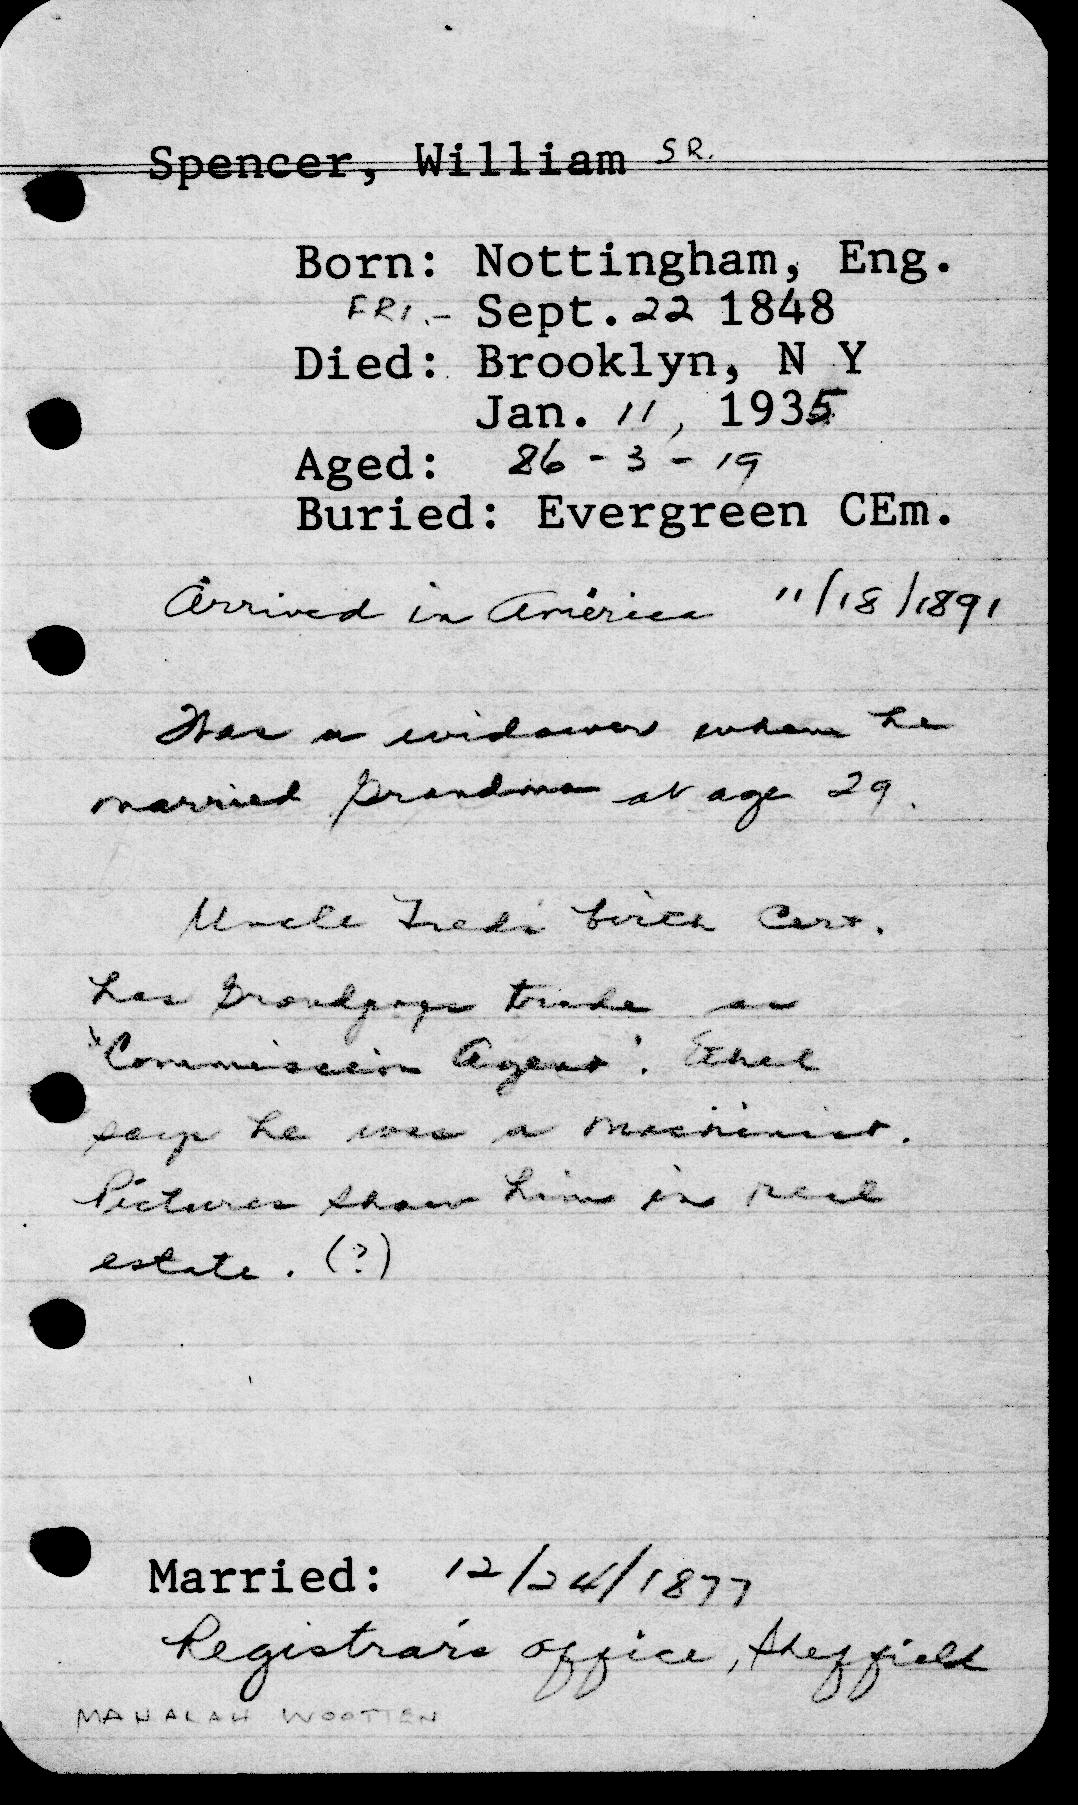 Spencer, William SR.
Born: Nottingham, Eng.
FRI.- Sept. 22 1848
Died: Brooklyn, N Y
Jan. 11, 1935
Aged: 86 - 3 - 19
Buried: Evergreen CEm.
Arrived in America 11/18/1891
Was a widower when he
married Grandma at age 29.
Uncle Fred's birth Cert.
has Grandpops trade as
"Commission Agent". Ethel
says he was a machinist.
Pictures show him in real
estate. (?)
Married: 12/24/1877
Registrar's office, Sheffield
MAHALAH WOOTTEN